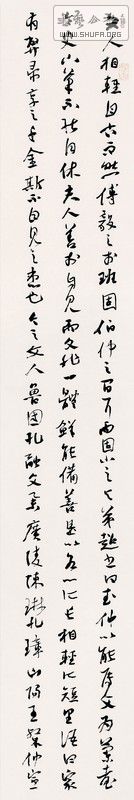 WWW.SHUFR.ORG
文人相輕自古而然傅毅之於班固伯仲之間耳而固小之與弟超書曰武仲以能屬文為蘭臺
史下筆不能自休夫人善於自見而文非一體鮮能備善是以各以所長相輕所短里語曰家
有弊帚享之千金斯不自見之患也今之文人魯國孔融文舉廣陵陳琳孔璋山陽王粲仲宣